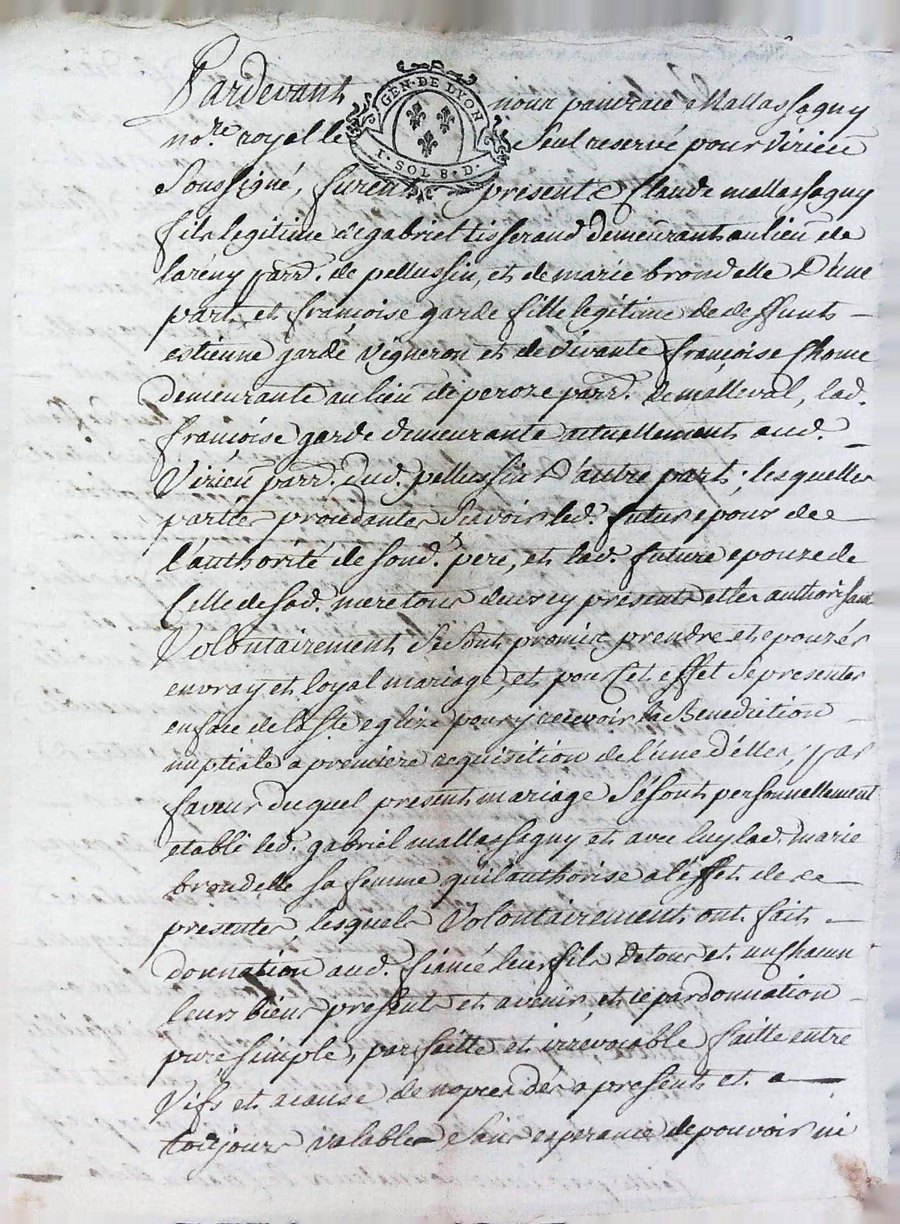 Pardevant nous pancrace Mallassagny
GEN · DE LYON
1 · SOL 8 · D ·
no.re royal le seul reservé pour Virieu
Soussigné, furent presents Claude mallassagny
fils legitime de gabriel tisserand demeurant au lieu de
larény parr. de pellussin, et de marie brondelle D'une
part et françoise garde fille legitime de deffunt
estienne garde vigneron et de vivante françoise Chome
demeurante au lieu de peroze parr. de malleval, lad.
françoise garde demeurante actuellement aud.
Virieu parr. dud. pellussin D'autre part; lesquelles
parties procedantes sçavoir led. futur epoux de
l'authorité de sond. pere, et lad. future epouze de
Celle de sad. mere tous deux icy presents et les authorisant
Volontairement Se sont promis prendre et epouzér
en vray et loyal mariage, et pour Cet effet Se presenter
en face de la ste eglize pour y recevoir la Benediction
nuptiale a premiere requisition de l'une d'elles, par
faveur duquel present mariage S'é sont personnellement
etabli led. gabriel mallassagny et avec luy lad. marie
brondelle sa femme qu'il authorise a l'éffet de ce
presentes, lesquels Volontairement ont fait
donnation aud. fiancé leur fils de tous et un Chacun
leurs biens present et avenir, et ce par donnation
pure, simple, parfaitte et irrevocable faitte entre
Vifs et a cause de nopces dés a present et a
toujours valable Sans esperance de pouvoir ni